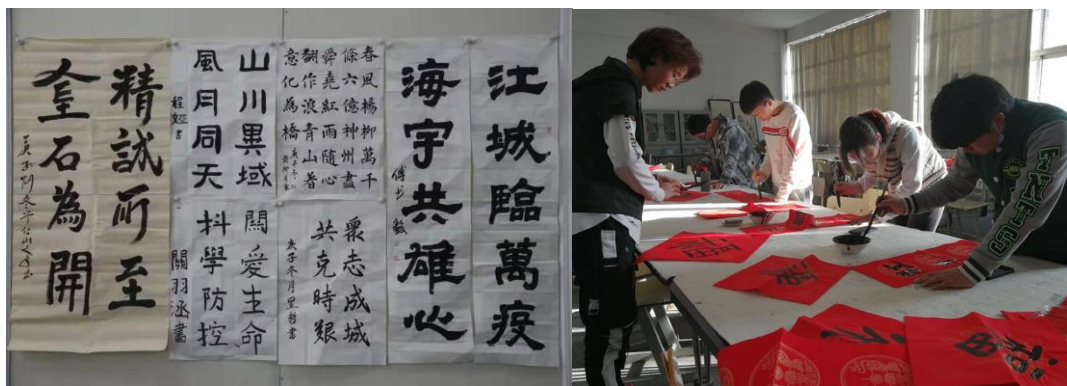 精誠所至
金石為開
山川異域
風月同天
關愛生命
科學防控
關羽涵書
春風楊柳萬千
條六億神州盡
舜堯紅雨隨心
翻作浪青山著
意化為橋
眾志成城
共克時艱
江城臨萬疫
海宇共雄心
福
福